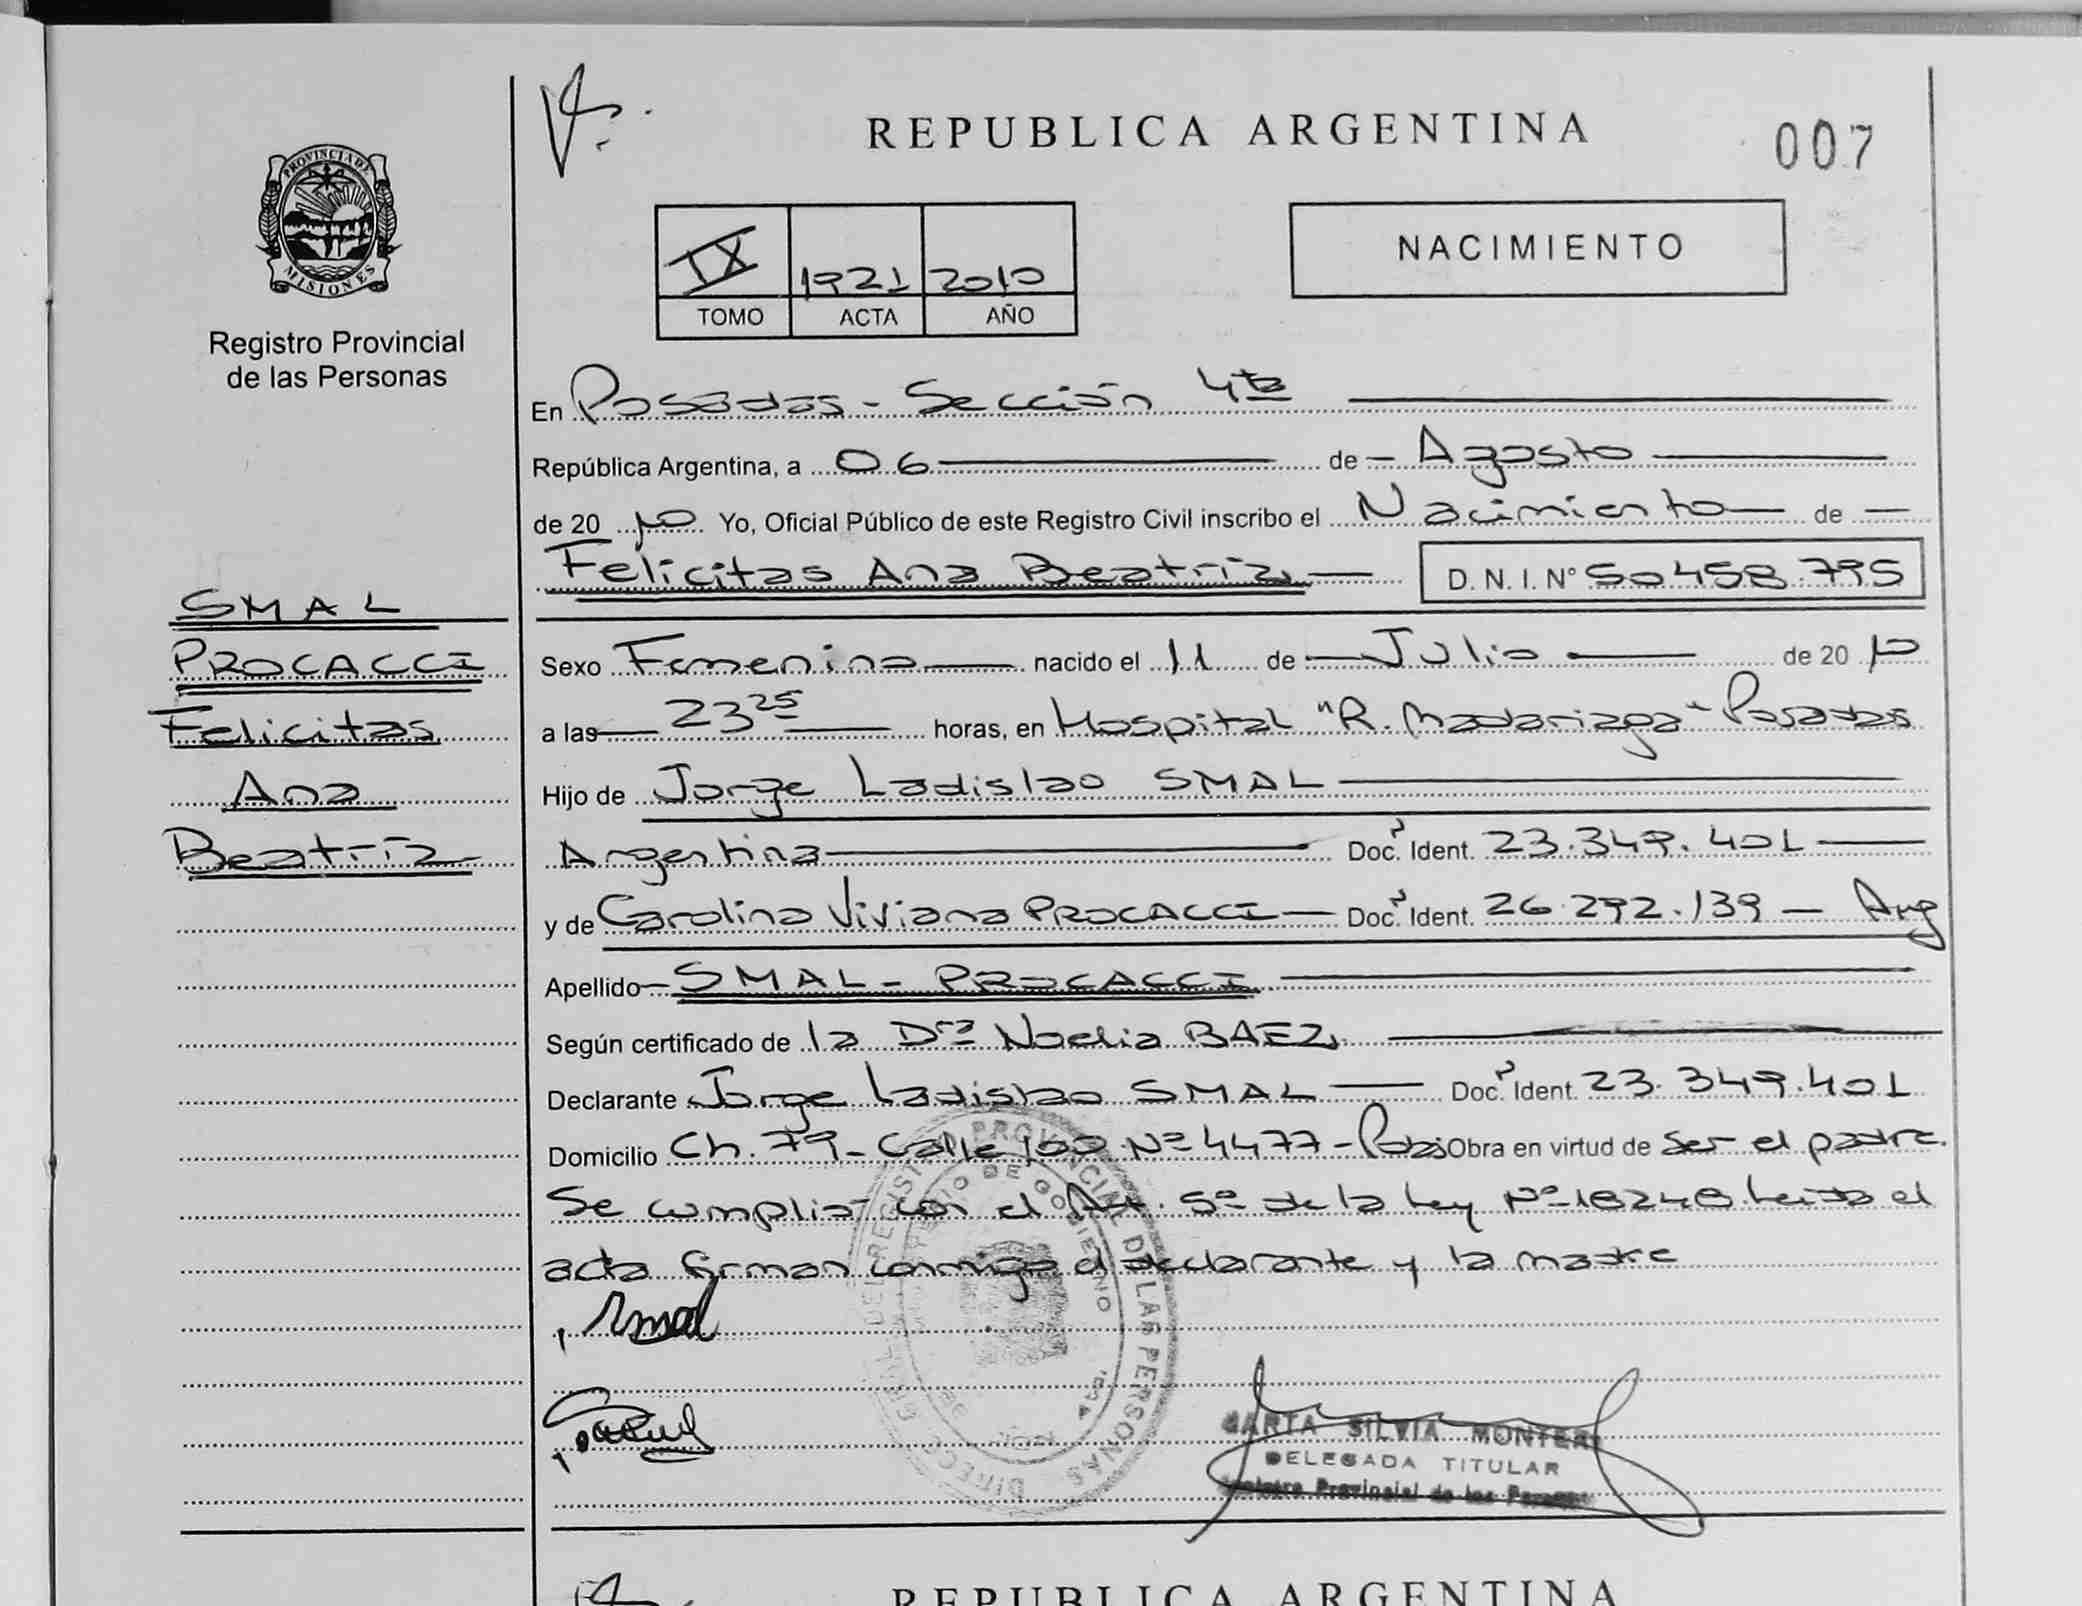 REPUBLICA ARGENTINA
007
PROVINCIA DE
MISIONES
Registro Provincial
de las Personas
IX 1921 2010
TOMO ACTA AÑO
NACIMIENTO
En Posadas - Sección 4ta
República Argentina, a 06 de Agosto
de 2010 Yo, Oficial Público de este Registro Civil inscribo el Nacimiento de
Felicitas Ana Beatriz D. N. I. Nº 50.458.795
SMAL
PROCACCI
Felicitas
Ana
Beatriz
Sexo Femenino nacido el 11 de Julio de 2010
a las 23 25 horas, en Hospital "R. Madariaga" Posadas
Hijo de Jorge Ladislao SMAL
Argentina Doc. Ident. 23.349.401
y de Carolina Viviana PROCACCI Doc. Ident. 26.292.139 - Arg
Apellido SMAL - PROCACCI
Según certificado de la Dra Noelia BAEZ
Declarante Jorge Ladislao SMAL Doc. Ident. 23.349.401
Domicilio Ch. 79 - Calle 100 Nº 4477 - Pdas Obra en virtud de ser el padre.
Se cumplió con el Art. 5º de la Ley Nº 18248 Leida el
acta firman conmigo el declarante y la madre
PROVINCIAL DE LAS PERSONAS
DE GOBIERNO
SILVIA
DELEGADA TITULAR
Provincial de las
REPUBLICA ARGENTINA